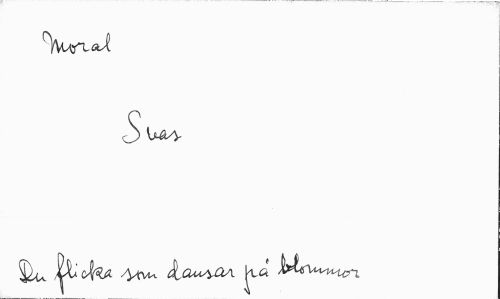 Moral
Svas
Du flicka som dansar på blommor